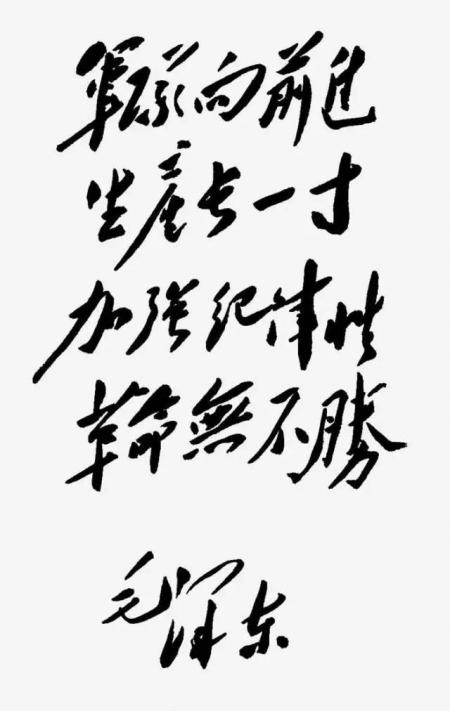 軍队向前进
生產长一寸
加强纪律性
革命無不勝
毛泽东